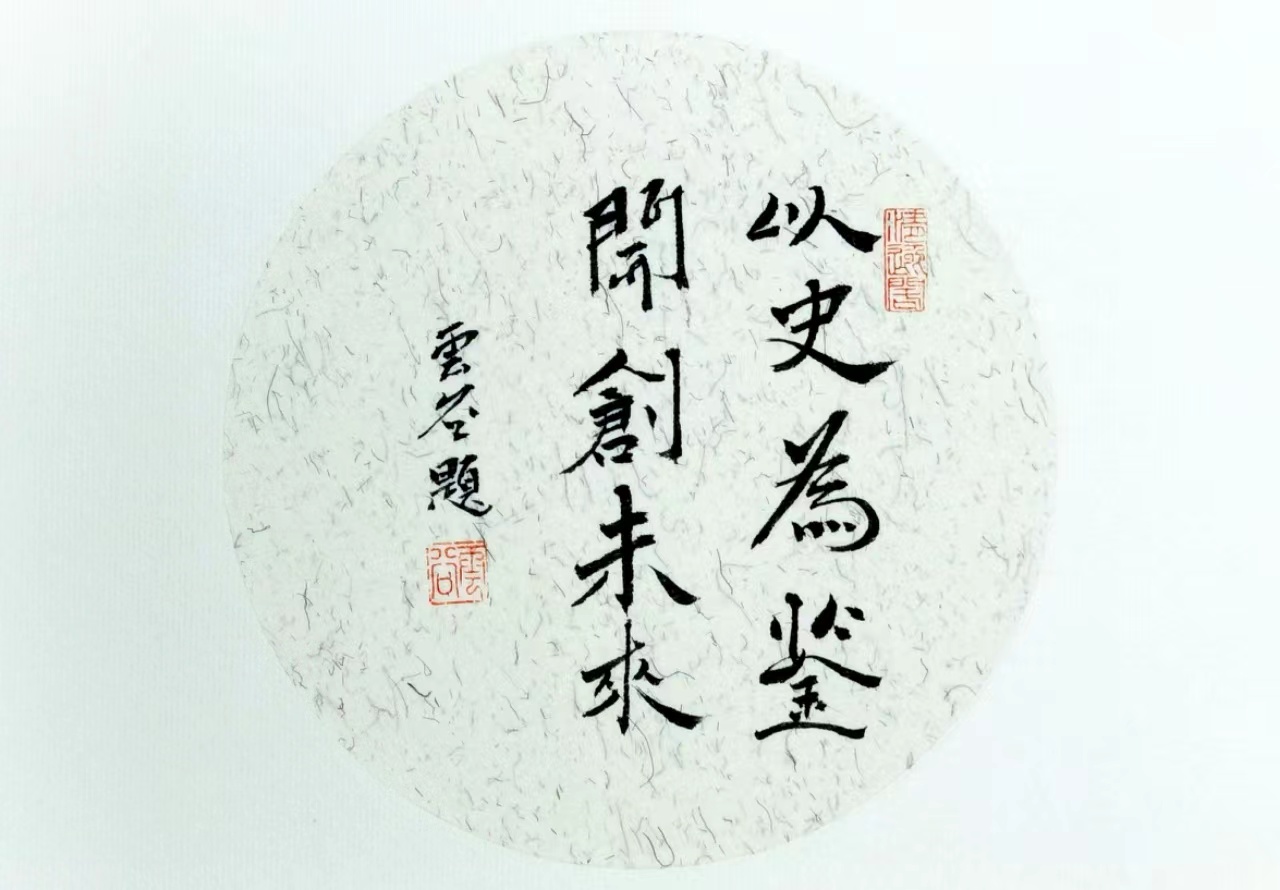 以史為鉴
開創未來
雲谷題
雲谷